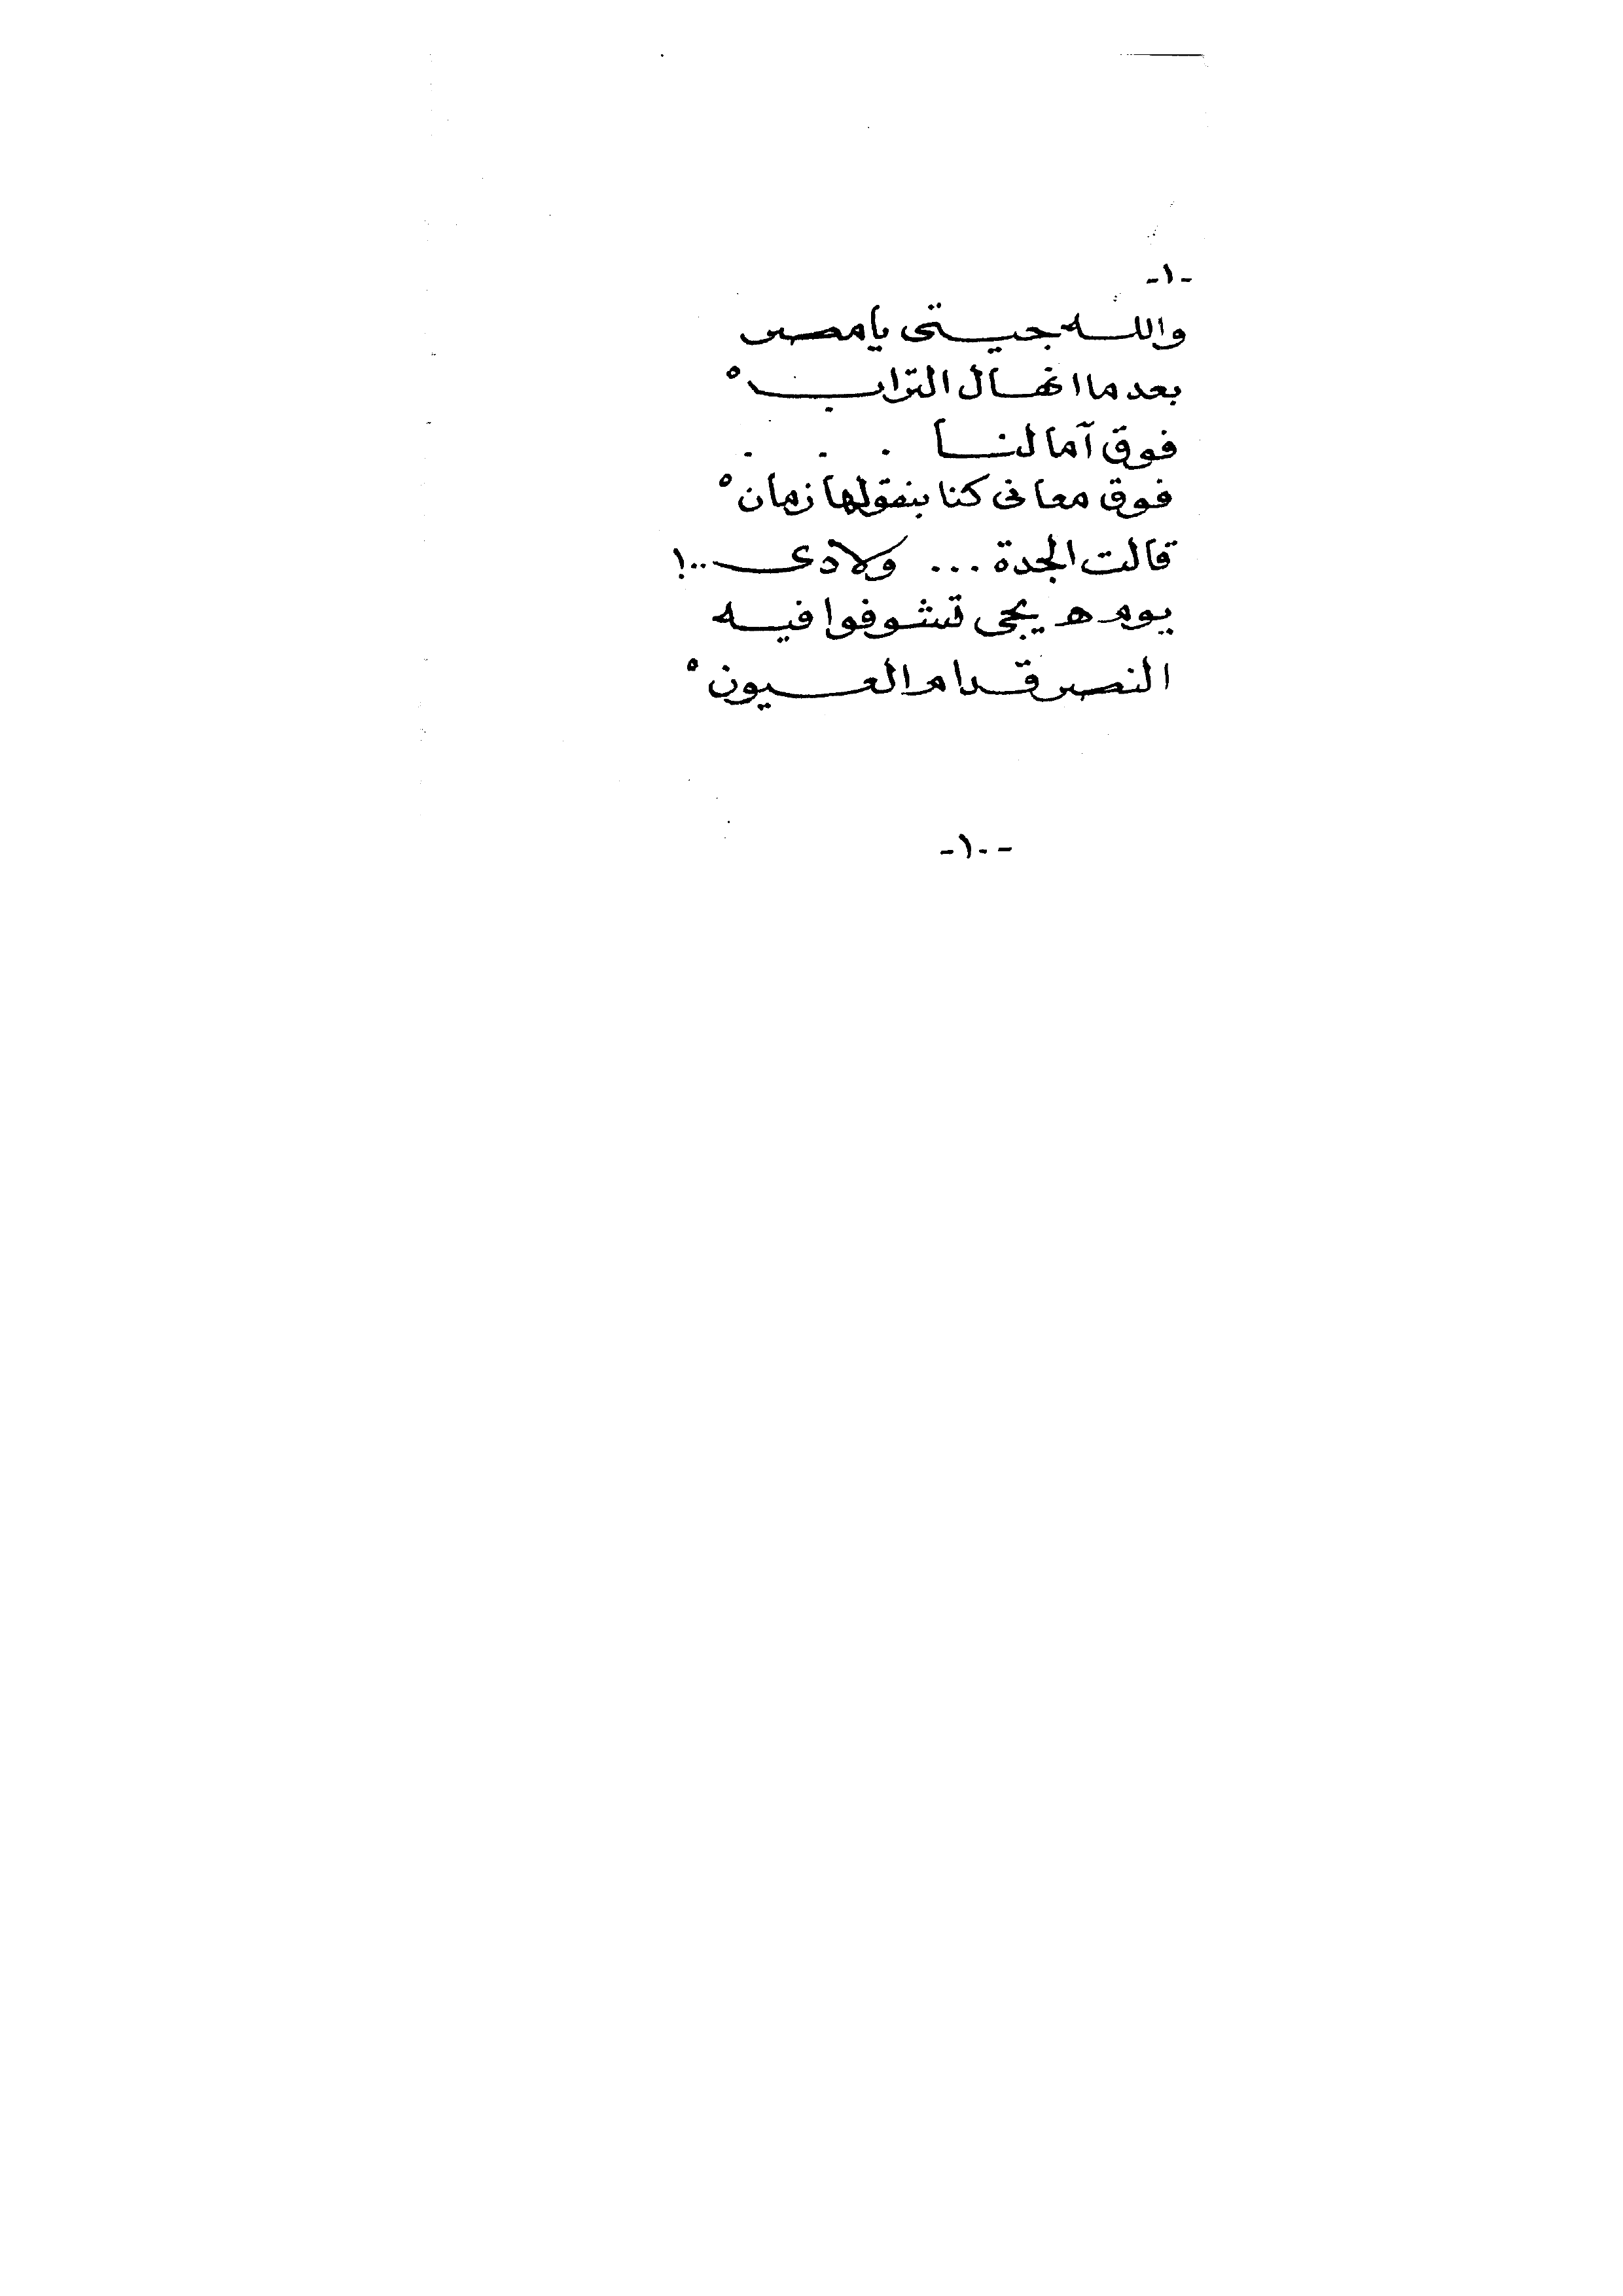 -١-
والله جيتى يا مصر
بعد ما انهال الترابْ
فوق آمالنا . . .
فوق معانى كنا بنقولها زمانْ
قالت الجدة ... ولادى ..!
يوم هـ يجى تشوفوا فيه
النصر قدام العيونْ
-١٠-